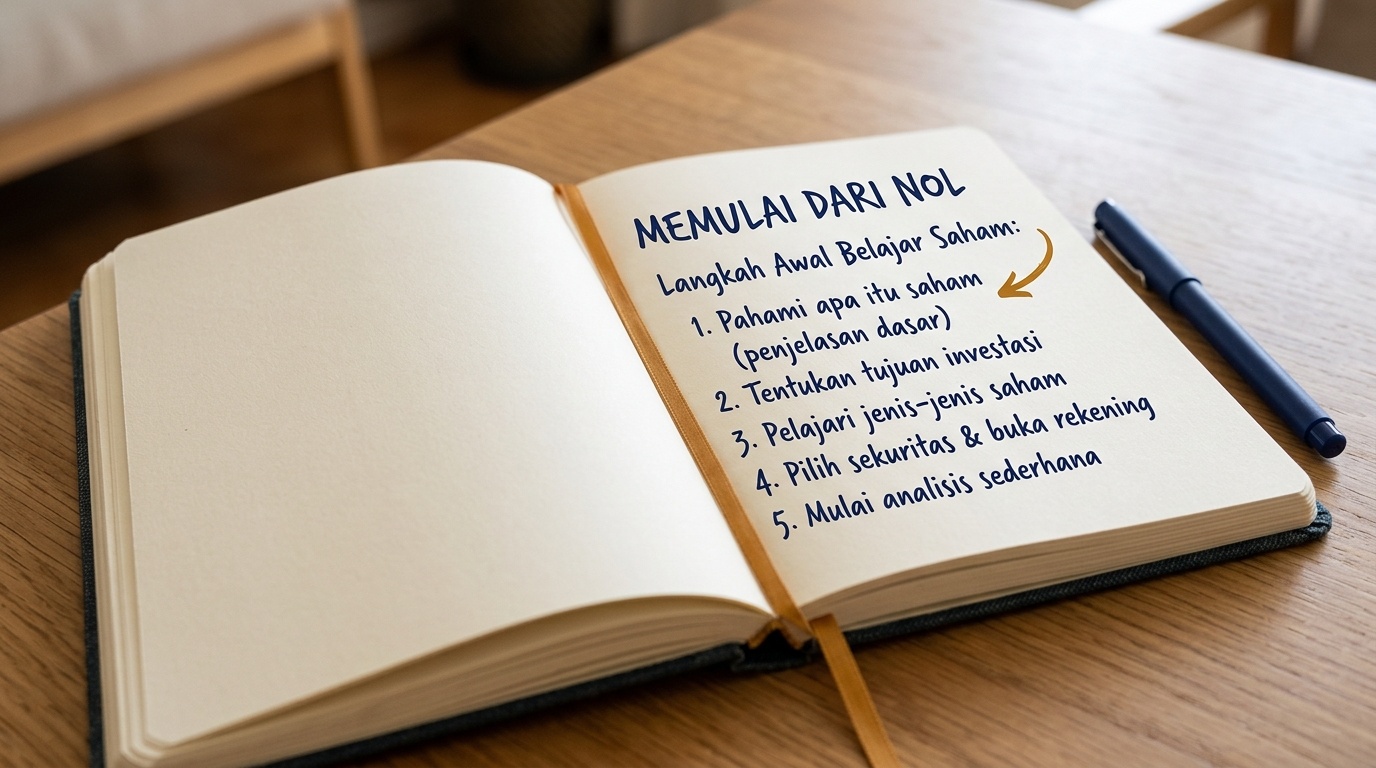 MEMULAI DARI NOL
Langkah Awal Belajar Saham:
1. Pahami apa itu saham
(penjelasan dasar)
2. Tentukan tujuan investasi
3. Pelajari jenis-jenis saham
4. Pilih sekuritas & buka rekening
5. Mulai analisis sederhana